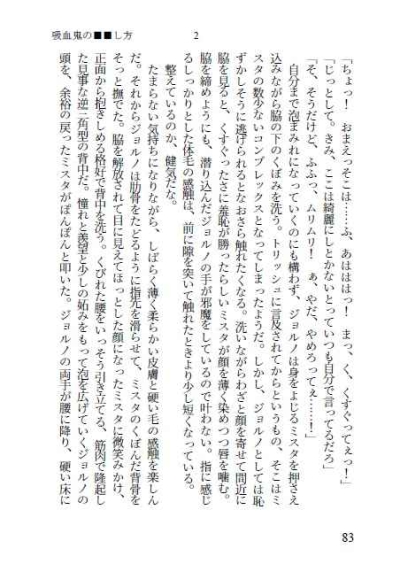 吸血鬼の■■し方
2
「ちょっ! おまえっそこは……ふ、あはははは! まっ、く、くすぐってえっ!」
「じっとして。きみ、ここは綺麗にしとかないとっていつも自分で言ってるだろ」
「そ、そうだけど、ふふっ、ムリムリ! ぁ、やだ、やめろってぇ……!」
自分まで泡まみれになっていくのにも構わず、ジョルノは身をよじるミスタを押さえ
込みながら脇の下のくぼみを洗う。トリッシュに言及されてからというもの、そこはミ
スタの数少ないコンプレックスとなってしまったようだ。しかし、ジョルノとしては恥
ずかしそうに逃げられるとなおさら触れたくなる。洗いながらわざと顔を寄せて間近に
脇を見ると、くすぐったさに羞恥が勝ったらしいミスタが顔を薄く染めつつ唇を噛む。
脇を締めようにも、潜り込んだジョルノの手が邪魔をしているので叶わない。指に感じ
るしっかりとした体毛の感触は、前に隙を突いて触れたときより少し短くなっている。
整えているのか、健気だな。
たまらない気持ちになりながら、しばらく薄く柔らかい皮膚と硬い毛の感触を楽しん
だ。それからジョルノは肋骨をたどるように指先を滑らせて、ミスタのくぼんだ背骨を
そっと撫でた。脇を解放されて目に見えてほっとした顔になったミスタに微笑みかけ、
正面から抱きしめる格好で背中を洗う。くびれた腰をいっそう引き立てる、筋肉で隆起し
た見事な逆三角型の背中だ。憧れと羨望と少しの妬みをもって泡を広げていくジョルノの
頭を、余裕の戻ったミスタがぽんぽんと叩いた。ジョルノの両手が腰に降り、硬い床に
83